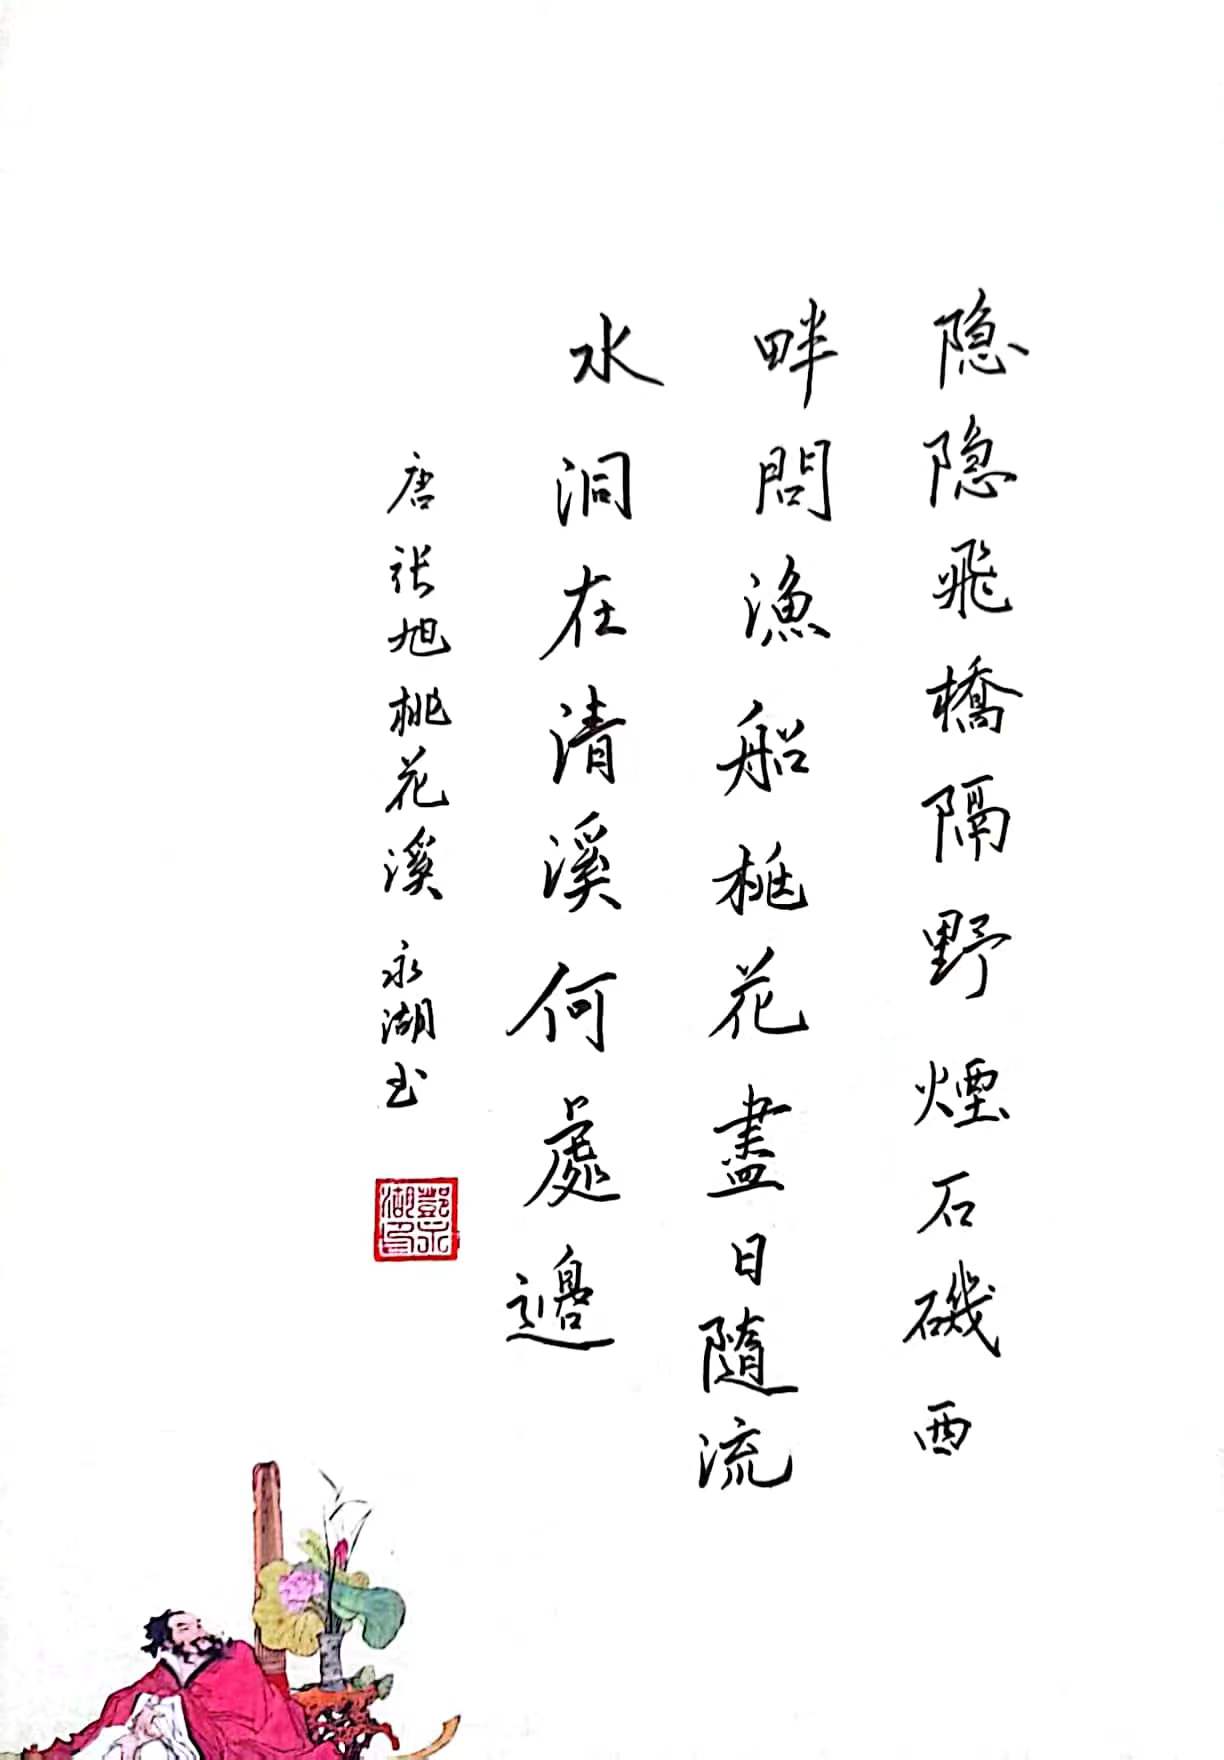 隐隐飛橋隔野煙石磯西
畔問漁船桃花盡日隨流
水洞在清溪何處邊
唐张旭桃花溪 永湖书